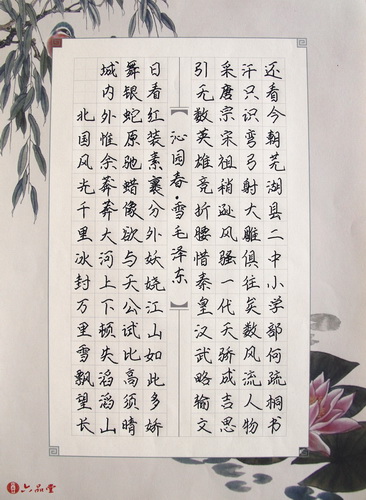 北国风光千里冰封万里雪飘望长
城内外惟余莽莽大河上下顿失滔滔山
舞银蛇原驰蜡像欲与天公试比高须晴
日看红装素裹分外妖娆江山如此多娇
沁园春·雪毛泽东
引无数英雄竞折腰惜秦皇汉武略输文
采唐宗宋祖稍逊风骚一代天骄成吉思
汗只识弯弓射大雕俱往矣数风流人物
还看今朝芜湖县二中小学部何疏桐书
六品堂